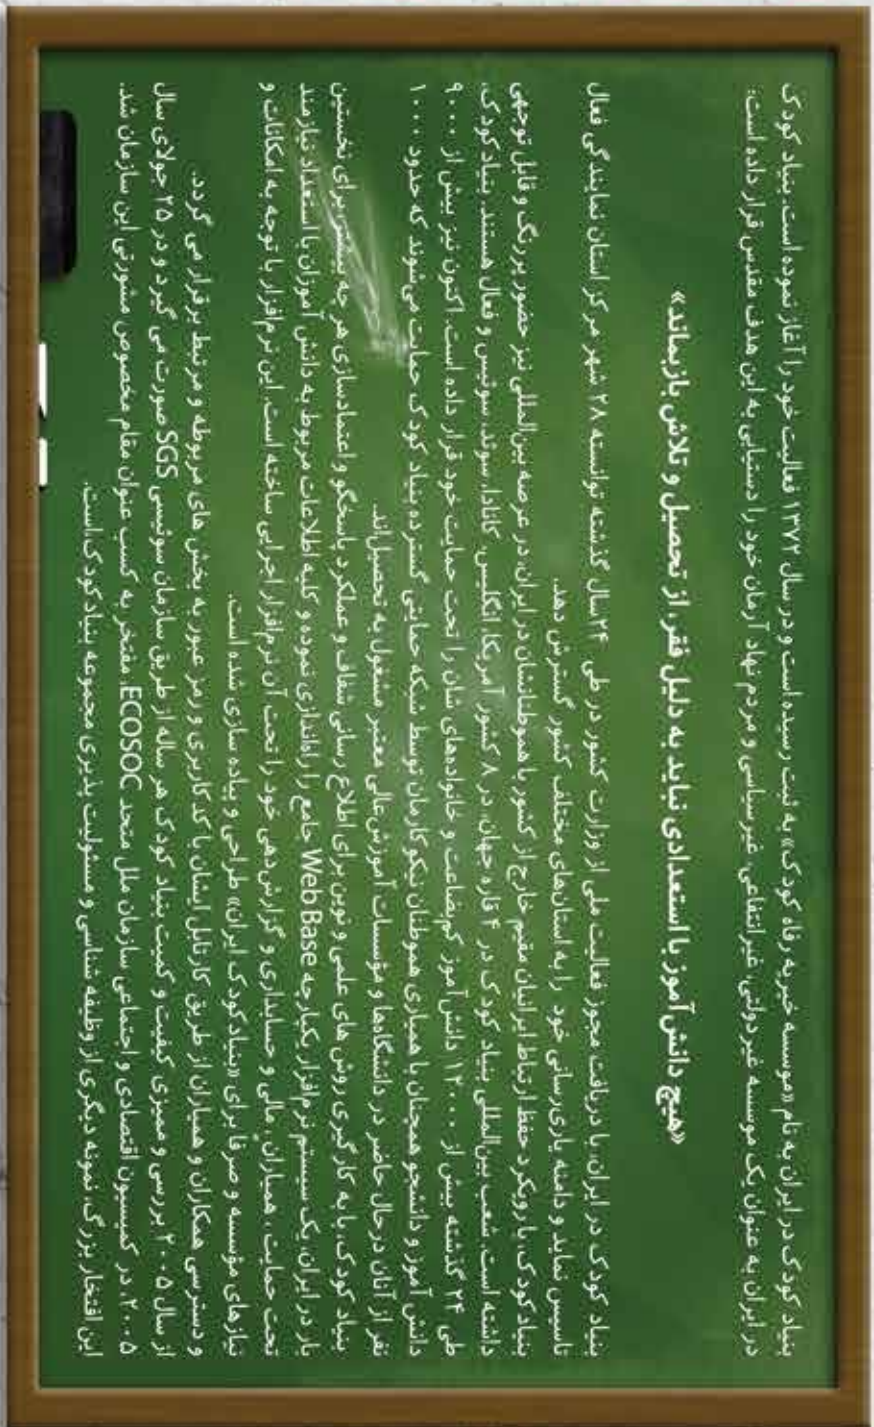 بنیاد کودک در ایران به نام «موسسه خیریه رفاه کودک» به ثبت رسیده است و در سال ۱۳۷۲ فعالیت خود را آغاز نموده است. بنیاد کودک
در ایران به عنوان یک موسسه غیر دولتی، غیر انتفاعی، غیر سیاسی و مردم نهاد آرمان خود را دستیابی به این هدف مقدس قرار داده است:
«هیچ دانش‌آموز با استعدادی نباید به دلیل فقر، از تحصیل و تلاش بازبماند»
بنیاد کودک در ایران، با دریافت مجوز فعالیت ملی از وزارت کشور در طی ۲۴سال گذشته توانسته ۲۸ شهر مرکز استان نمایندگی فعال
تاسیس نماید و دامنه یاری‌رسانی خود را به استان‌های مختلف کشور گسترش دهد.
بنیاد کودک، با رویکرد حفظ ارتباط ایرانیان مقیم خارج از کشور با هموطنانشان در ایران، در عرصه بین‌المللی نیز حضور پررنگ و قابل توجهی
داشته است. شعب بین‌المللی بنیاد کودک در ۴ قاره جهان، در ۸ کشور آمریکا، انگلیس، کانادا، سوئد، سوئیس و فعال هستند. بنیاد کودک،
طی ۲۴ گذشته بیش از ۱۲۰۰۰ دانش‌آموز کم‌بضاعت و خانواده‌های شان را تحت حمایت خود قرار داده است. اکنون نیز بیش از ۹۰۰۰
دانش آموز و دانشجو همچنان با همیاری هموطنان نیکوکارمان توسط شبکه حمایتی گسترده بنیاد کودک حمایت می‌شوند که حدود ۱۰۰۰
نفر از آنان درحال حاضر در دانشگاه‌ها و مؤسسات آموزش‌عالی معتبر مشغول به تحصیل‌اند.
بنیاد کودک، با به کارگیری روش های علمی و نوین برای اطلاع رسانی شفاف و عملکرد پاسخگو و اعتمادسازی هر چه بیشتر، برای نخستین
بار در ایران، یک سیستم نرم‌افزار یکپارچه Web Base جامع را راه‌اندازی نموده و کلیه اطلاعات مربوط به دانش آموزان با استعداد نیازمند
تحت حمایت، همیاران، مالی و حسابداری و گزارش‌دهی خود را تحت آن نرم‌افزار اجرایی ساخته است. این نرم‌افزار با توجه به امکانات و
نیازهای مؤسسه و صرفا برای «بنیاد کودک ایران» طراحی و پیاده سازی شده است.
و دسترسی همکاران و همیاران از طریق کارتابل ایشان با کد کاربری و رمز عبور به بخش های مربوطه و مرتبط برقرار می گردد.
از سال ۲۰۰۵ بررسی و ممیزی کیفیت و کمیت بنیاد کودک هر ساله از طریق سازمان سوئیسی SGS صورت می گیرد و در ۲۵ جولای سال
۲۰۰۵، در کمیسیون اقتصادی و اجتماعی سازمان ملل متحد ECOSOC، مفتخر به کسب عنوان مقام مخصوص مشورتی این سازمان شد.
این افتخار بزرگ، نمونه دیگری از وظیفه شناسی و مسئولیت پذیری مجموعه بنیاد کودک است.